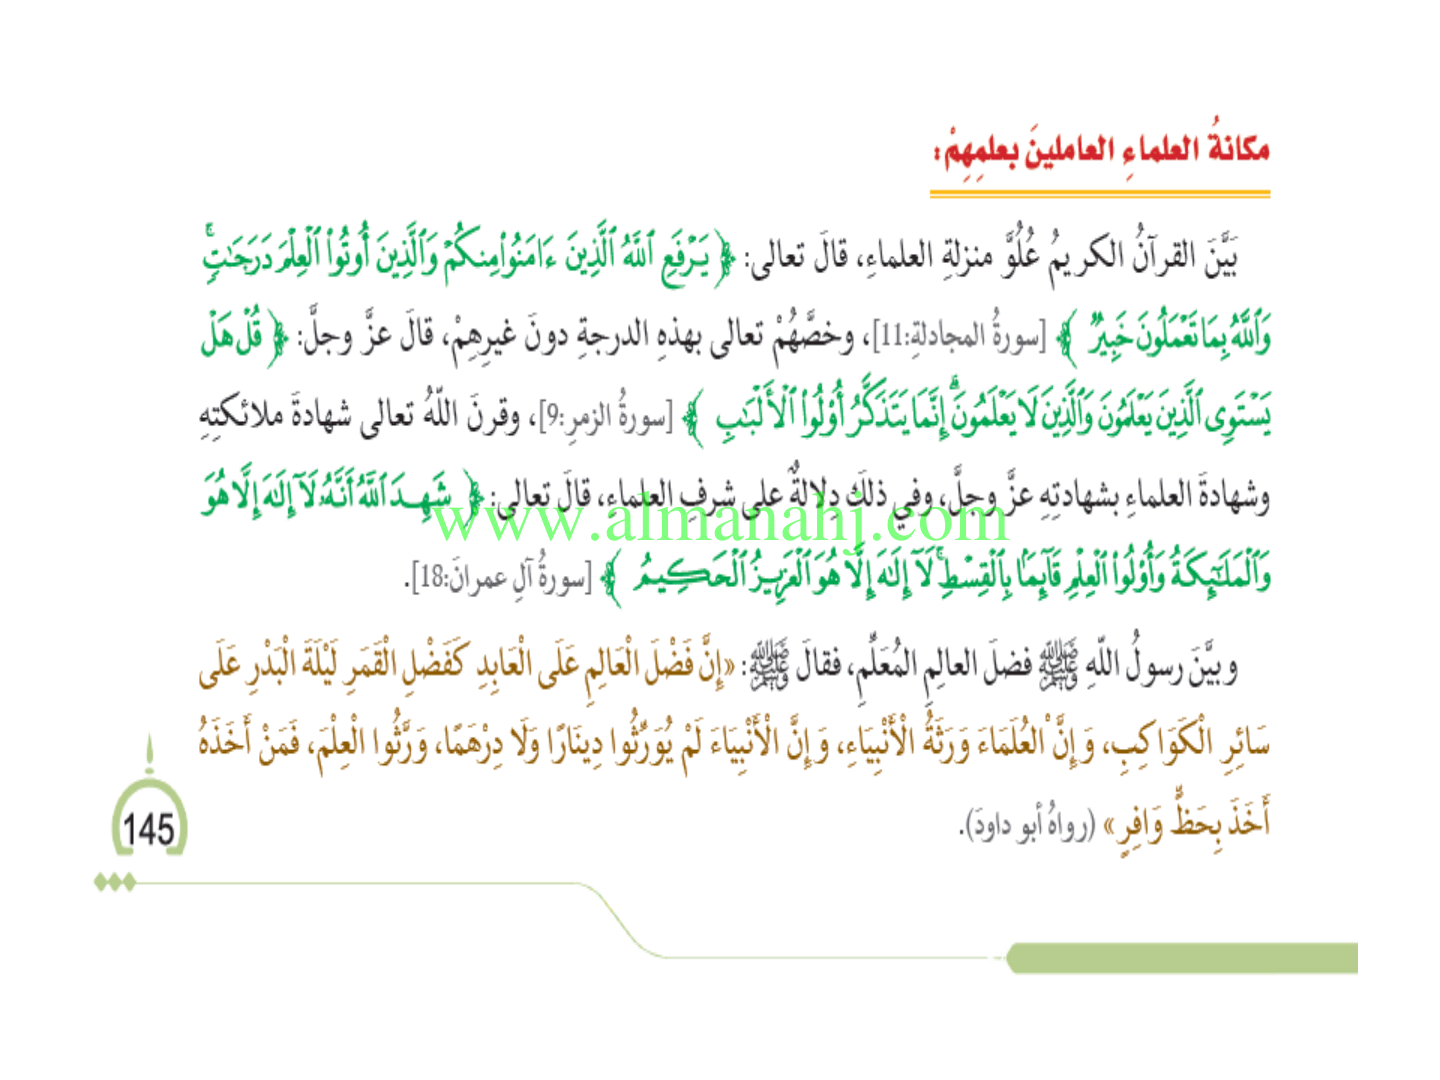 مكانةُ العلماءِ العاملينَ بعلمِهِمْ:
بَيَّنَ القرآنُ الكريمُ عُلُوَّ منزلةِ العلماءِ، قالَ تعالى: ﴿ يَرْفَعِ ٱللَّهُ ٱلَّذِينَ ءَامَنُوا۟ مِنكُمْ وَٱلَّذِينَ أُوتُوا۟ ٱلْعِلْمَ دَرَجَٰتٍۚ
وَٱللَّهُ بِمَا تَعْمَلُونَ خَبِيرٌ ﴾ [سورةُ المجادلةِ:11]، وخصَّهُمْ تعالى بهذهِ الدرجةِ دونَ غيرِهِمْ، قالَ عزَّ وجلَّ: ﴿ قُلْ هَلْ
يَسْتَوِى ٱلَّذِينَ يَعْلَمُونَ وَٱلَّذِينَ لَا يَعْلَمُونَۗ إِنَّمَا يَتَذَكَّرُ أُو۟لُوا۟ ٱلْأَلْبَٰبِ ﴾ [سورةُ الزمرِ:9]، وقرنَ اللّهُ تعالى شهادةَ ملائكتِهِ
وشهادةَ العلماءِ بشهادتِهِ عزَّ وجلَّ، وفي ذلكَ دِلالةٌ على شرفِ العلماءِ، قالَ تعالى: ﴿ شَهِدَ ٱللَّهُ أَنَّهُۥ لَآ إِلَٰهَ إِلَّا هُوَ
www.almanahj.com
وَٱلْمَلَٰٓئِكَةُ وَأُو۟لُوا۟ ٱلْعِلْمِ قَآئِمًۢا بِٱلْقِسْطِۚ لَآ إِلَٰهَ إِلَّا هُوَ ٱلْعَزِيزُ ٱلْحَكِيمُ ﴾ [سورةُ آلِ عمرانَ:18].
وبيَّنَ رسولُ اللّهِ ﷺ فضلَ العالمِ المُعَلِّمِ، فقالَ ﷺ: «إِنَّ فَضْلَ الْعَالِمِ عَلَى الْعَابِدِ كَفَضْلِ الْقَمَرِ لَيْلَةَ الْبَدْرِ عَلَى
سَائِرِ الْكَوَاكِبِ، وَإِنَّ الْعُلَمَاءَ وَرَثَةُ الْأَنْبِيَاءِ، وَإِنَّ الْأَنْبِيَاءَ لَمْ يُوَرِّثُوا دِينَارًا وَلَا دِرْهَمًا، وَرَّثُوا الْعِلْمَ، فَمَنْ أَخَذَهُ
أَخَذَ بِحَظٍّ وَافِرٍ» (رواهُ أبو داودَ).
145